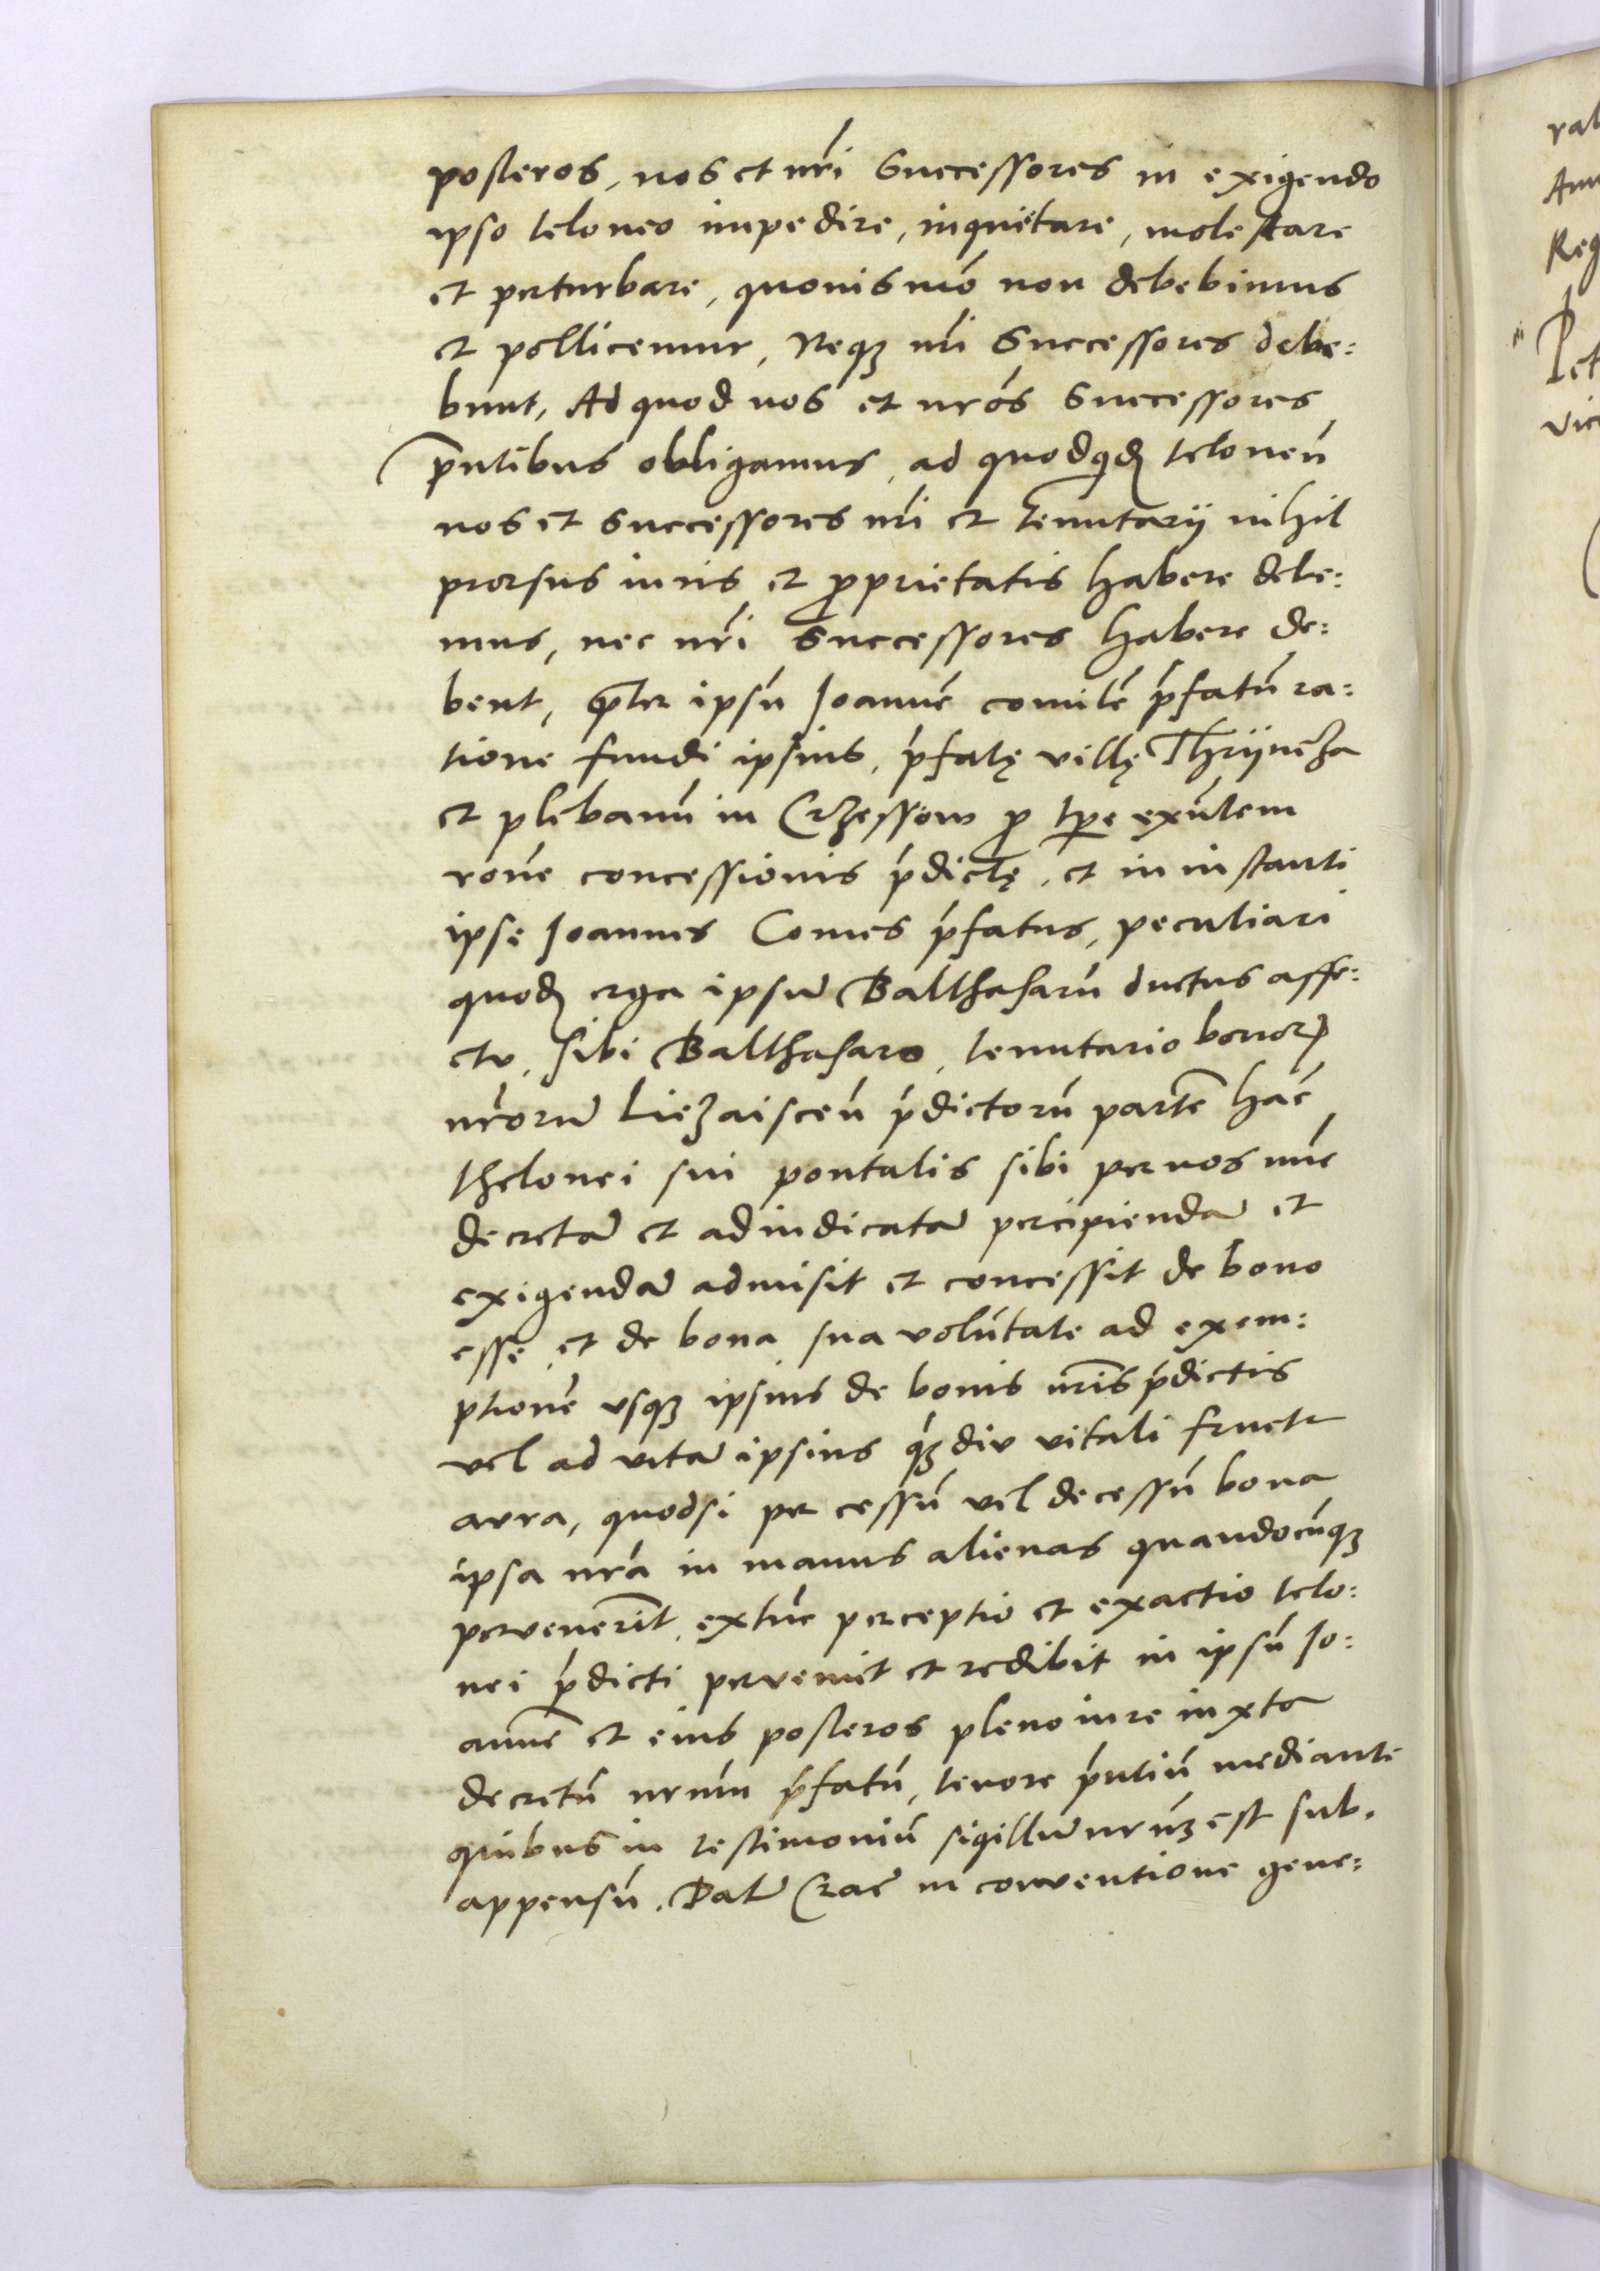 posteros, nos et nr̃i Successores in exigendo
ipso teloneo impedire, inquietare, molestare
et perturbare, quouismõ non debebimus
et pollicemur, Neqȝ nr̃i Successores debe:
bunt, Ad quod nos et nrõs Successores
pñtibus obligamus, ad quodqd̃ teloneũ
nos et Successores nr̃i et tenutarij nihil
prorsus iuris et ꝓprietatis habere debe:
mus, nec nr̃i Successores habere de:
bent, p̃ter ipsũ Joannẽ comitẽ p̃fatũ ra:
tione fundi ipsius, p̃fatę villę Thrijncȝa
et plebanũ in Crȝessow ꝓ tp̃e exñtem
rõne concessionis p̃dictę, et in instanti
ipse Joannes Comes p̃fatus, peculiari
quod̃ erga ipsum̃ Balthasarũ ductus affe:
ctu, sibi Balthasaro, tenutario bonorꝝ
nrõrum̃ Lieȝaisceñ p̃dictorũ partẽ hãc
thelonei sui pontalis sibi per nos nũc
decretã et adiudicatã percipiendã et
exigendã admisit et concessit de bono
esse, et de bona sua volũtate ad exem:
ptionẽ vsqȝ ipsius de bonis nr̃is p̃dictis
vel ad vitã ipsius qȝ̃diu vitali fruetr
aura, quodsi per cessũ vel decessũ bona
ipsa nrã in manus alienas quandocũqȝ
peruenerĩt, extũc perceptio et exactio telo:
nei p̃dicti perueniet et redibit in ipsũ Jo:
annẽ et eius posteros pleno iure iuxta
decretũ nrũm p̃fatũ, tenore p̃ntiũ mediante
quibus in testimoniũ sigillum̃ nrũȝ est sub.
appensũ. Datũ Crac̃ in conuentione gene:
ral
Ann
Reg
Pet
vic